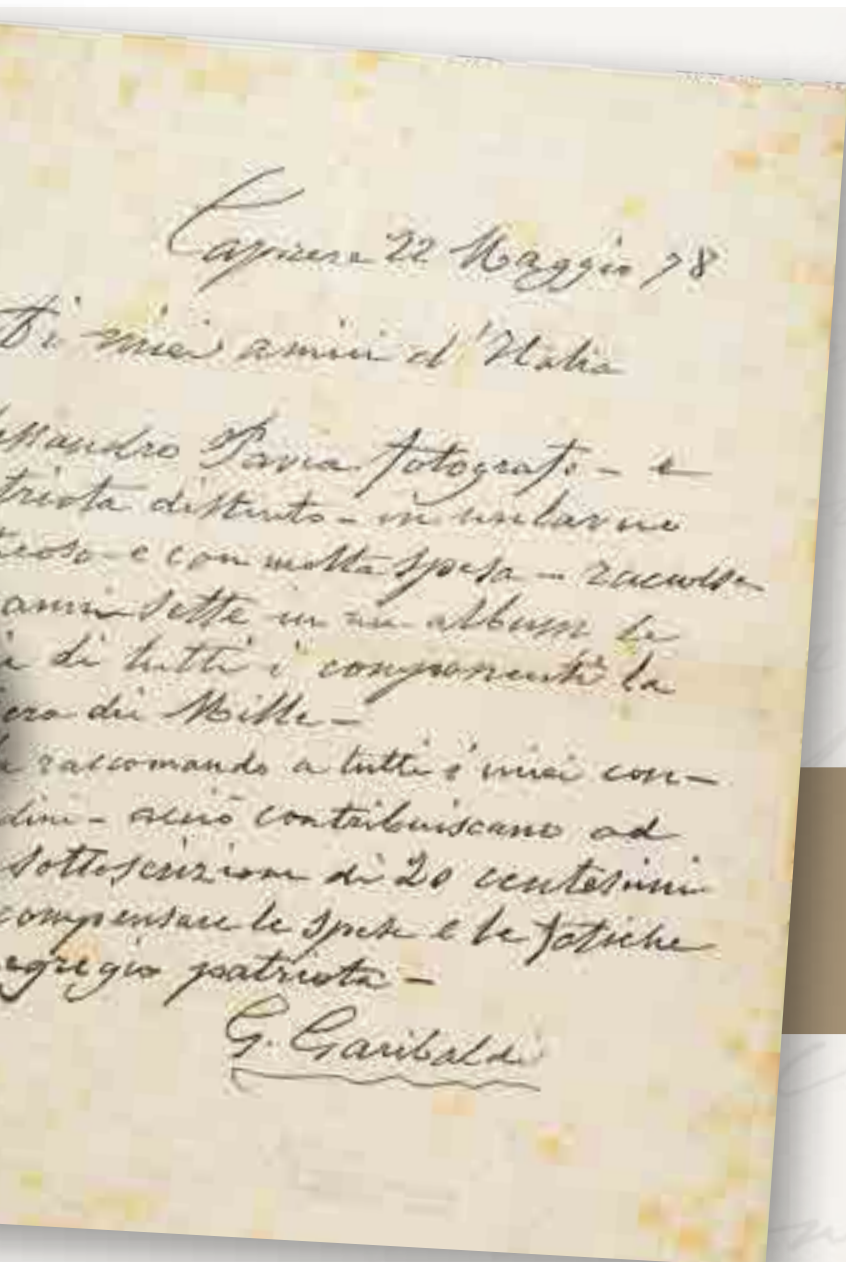 Caprera 22 Maggio 78
miei amici d'Italia
Pavia fotografo - e
distinto - in un lavoro
e con molta spesa - raccolse
anni sette in un album le
di tutti i componenti la
dei Mille -
raccomando a tutti i miei con-
dini - acciò contribuiscano ad
sottoscrizione di 20 centesimi
compensare le spese e le fatiche
egregio patriota -
G. Garibaldi